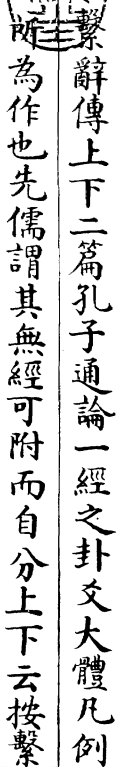 繫辭傳上下二篇孔子通論一經之卦爻大體凡例
所為作也先儒謂其無經可附而自分上下云按繫